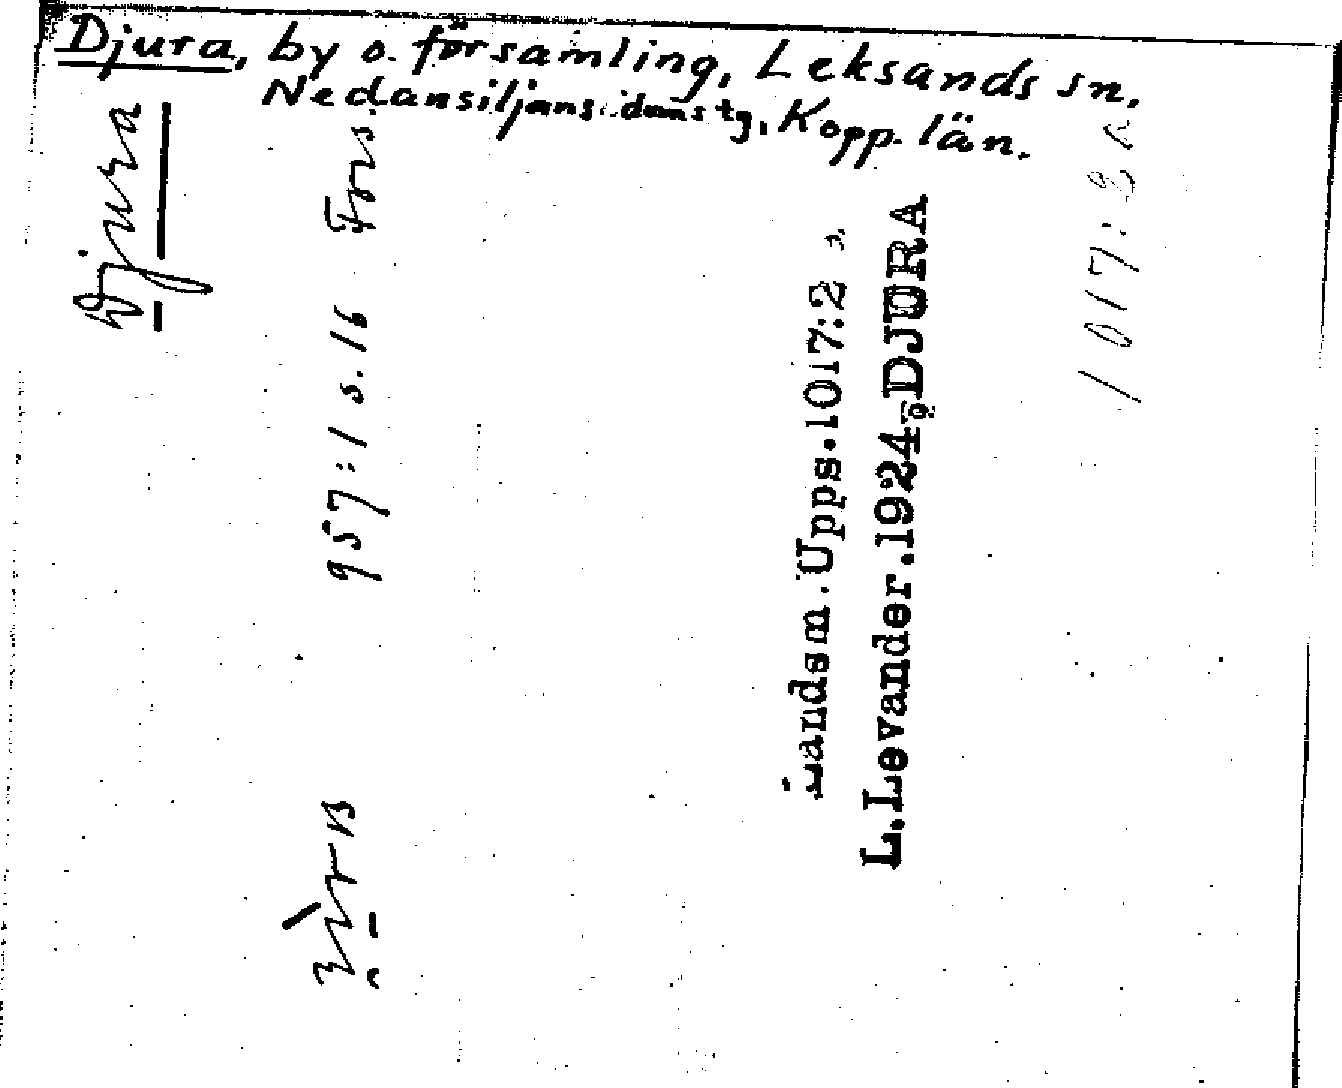 Djura, by o. församling, Leksands sn.
Nedansiljans domstg, Kopp. län.
Djura
957:1 s. 16 Frs.
Landsm. Upps. 1017:2 s.
L. Levander. 1924. DJURA
1017: